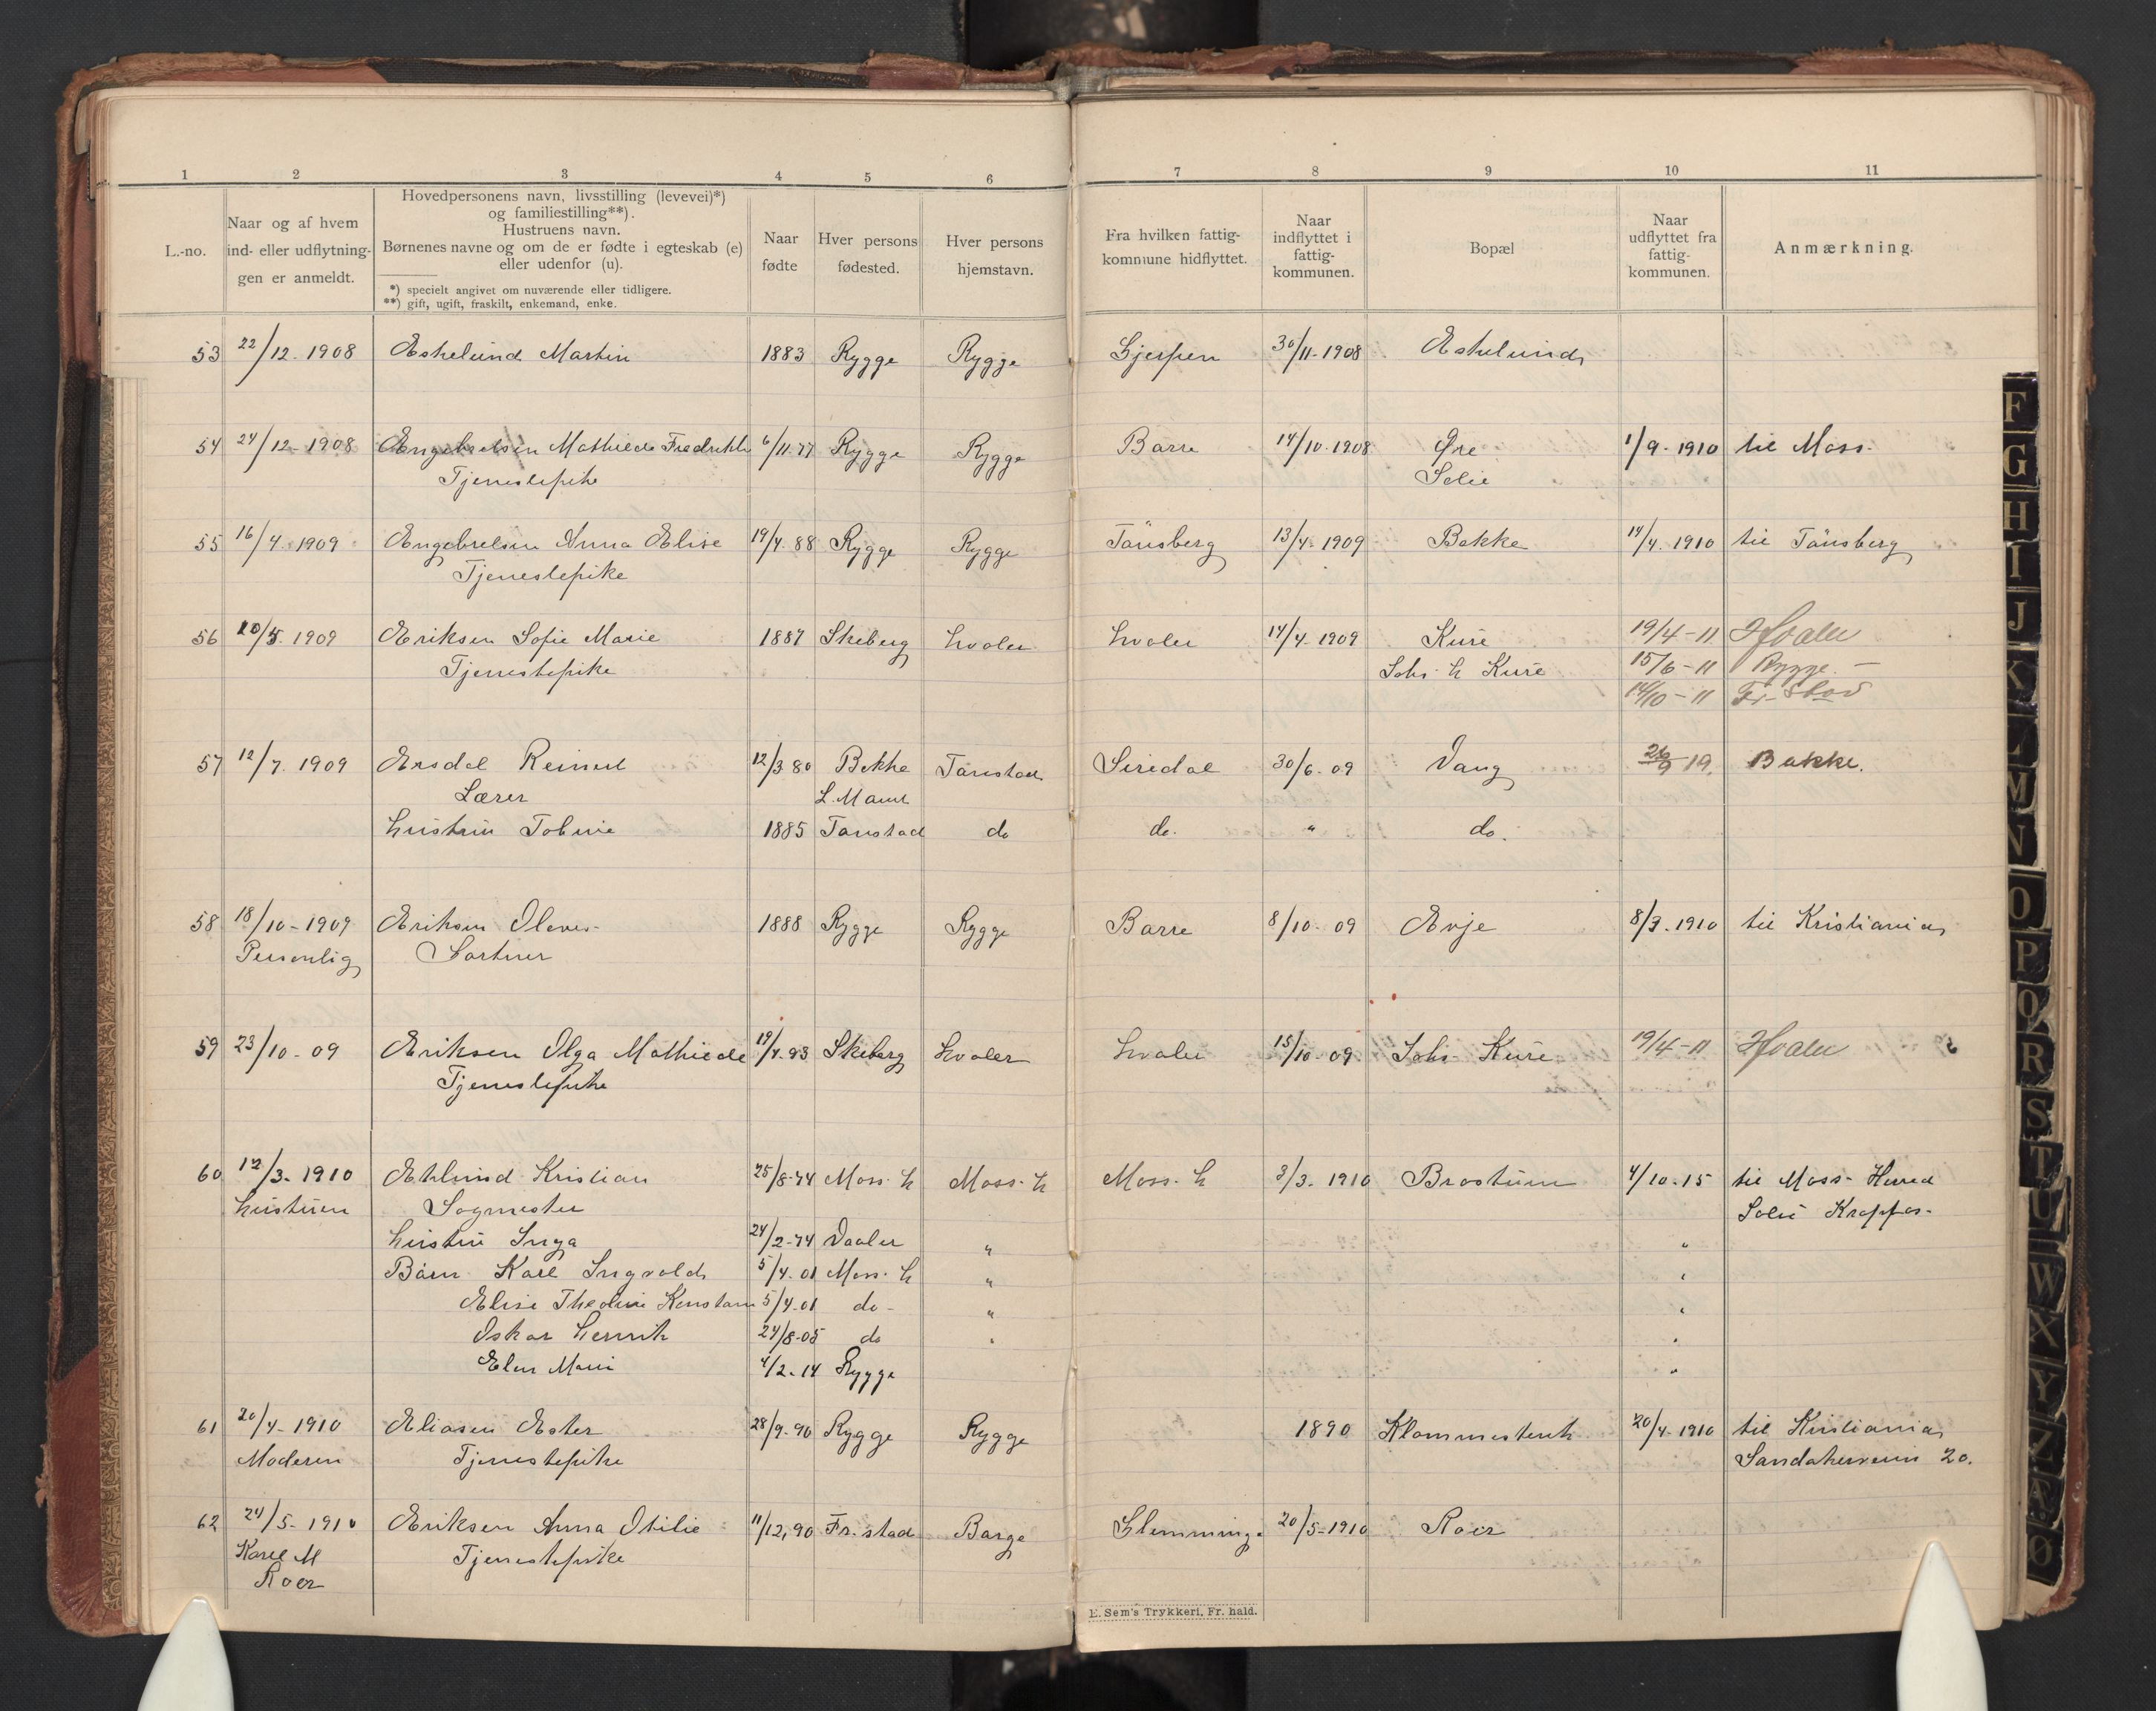 1 2 3 4 5 6 7 8 9 10 11
L.-no.
Naar og af hvem
ind- eller udflytnin-
gen er anmeldt.
Hovedpersonens navn, livsstilling (levevei)*)
og familiestilling**).
Hustruens navn.
Børnenes navne og om de er fødte i egteskab (e)
eller udenfor (u).
*) specielt angivet om nuværende eller tidligere.
**) gift, ugift, fraskilt, enkemand, enke.
Naar
fødte
Hver persons
fødested.
Hver persons
hjemstavn.
Fra hvilken fattig-
kommune hidflyttet.
Naar
indflyttet i
fattig-
kommunen.
Bopæl
Naar
udflyttet fra
fattig-
kommunen.
Anmærkning.
53 22/12-1908 Eskelund Martin 1883 Rygge Rygge Gjerpen 30/11-1908 Eskelund
54 24/12-1908 Engebretsen Mathilde Fredrikke 6/11.77 Rygge Rygge Borre 14/10.1908 Øre 1/9-1910 til Moss.
Tjenestepike Solie
55 16/4-1909 Engebretsen Anna Elise 19/4.88 Rygge Rygge Tönsberg 13/4-1909 Bekke 14/4.1910 til Tönsberg
Tjenestepike
56 20/5.1909 Eriksen Sofie Marie 1887 Skeberg Hvaler Hvaler 14/4-1909 Kure 19/4-11 Hvaler
Tjenestepike Johs. H Kure 15/6-11 Rygge.
14/10-11 Fr.stad
57 12/7.1909 Ersdal Reinert 12/3 80 Bakke Tonstad Siredal 30/6.09 Vang 26/9 19. Bakke.
Lærer L. Mand
Hustru Tobine 1885 Tonstad do do. " do.
58 18/10-1909 Eriksen Olaves 1888 Rygge Rygge Borre 8/10-09 Evje 8/3.1910 til Kristiania
Personlig Gartner
59 23/10-09 Eriksen Olga Mathilde 19/4.93 Skeberg Hvaler Hvaler 15/10-09 Johs Kure 19/4-11 Hvaler
Tjenestepike
60 12/3-1910 Eklund Kristian 25/8-74 Moss. H Moss. H Moss. H 3/3.1910 Brostuen 4/10.15 til Moss. Herred
Hustruen Sagmester Solie Kroppos.
Hustru Inga 24/2-74 Vaaler " "
Börn Karl Ingvald 5/4.01 Moss. H " "
Elise Theoline Konstan 5/4-01 do- " "
Oskar Henrik 24/8-05 do " "
Elen Marie 4/2-14 Rygge "
61 20/4-1910 Eliasen Ester 28/9-90 Rygge Rygge 1890 Klommestenk 20/4-1910 til Kristiania
Moderen Tjenestepike Sandakerveien 20.
62 24/5-1910 Eriksen Anna Otilie 11/12,90 Fr.stad Borge Glemminge 20/5-1910 Roer
Karl M Tjenestepike
Roer
E. Sem's Trykkeri, Fr. hald.
F
G
H
I
J
K
L
M
N
O
P
Q
R
S
T
U
W
X
Y
Z
Æ
Ø